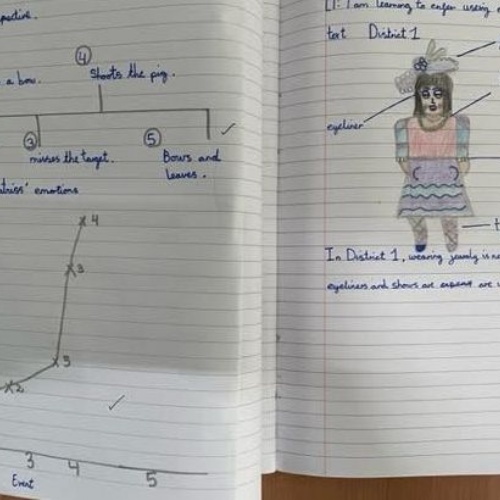 pective.
4
a bow.
shoots the pig.
3
5
misses the target.
Bows and
leaves.
tniss' emotions
4
3
5
2
3 4 5
Event
LI: I am learning to enfer useing
text District 1
eyeliner
In District 1, wearing
eyeliners and shows are